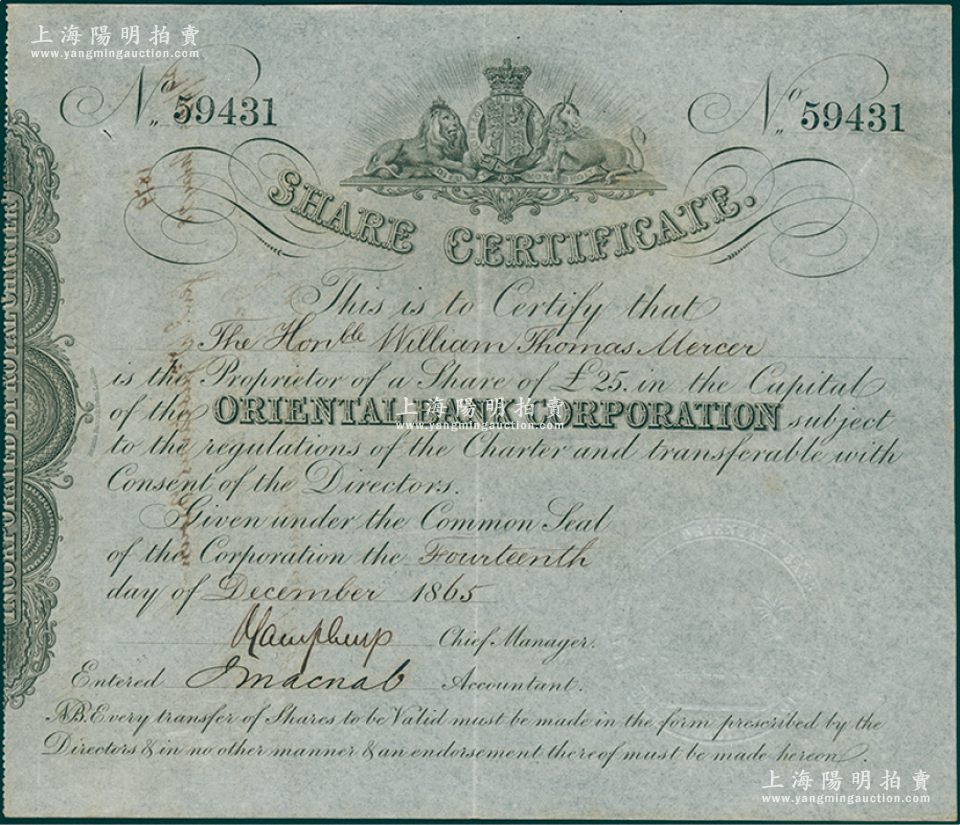 上海陽明拍賣
www.yangmingauction.com
No 59431
No 59431
SHARE CERTIFICATE.
This is to Certify that
The Honble William Thomas Mercer
is the Proprietor of a Share of £25. in the Capital
of the ORIENTAL BANK CORPORATION subject
上海陽明拍賣
www.yangmingauction.com
to the regulations of the Charter and transferable with
Consent of the Directors.
Given under the Common Seal
of the Corporation the Fourteenth
day of December 1865
Chief Manager.
Entered J Macnab Accountant.
NB. Every transfer of Shares to be Valid must be made in the form prescribed by the
Directors & in no other manner & an endorsement thereof must be made hereon.
INCORPORATED BY ROYAL CHARTER
ORIENTAL BANK
上海陽明拍賣
www.yangmingauction.com